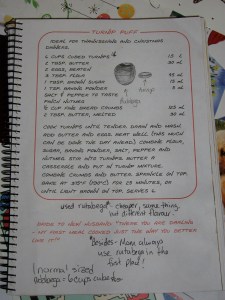 TURNIP PUFF
IDEAL FOR THANKSGIVING AND CHRISTMAS
DINNERS.
6 CUPS CUBED TURNIPS 1.5 L
2 TBSP. BUTTER 30 ML
2 EGGS, BEATEN
3 TBSP. FLOUR 45 ML
1 TBSP. BROWN SUGAR 15 ML
1 TSP. BAKING POWDER 5 ML
SALT & PEPPER TO TASTE
PINCH NUTMEG
½ CUP FINE BREAD CRUMBS 125 ML
2 TBSP. BUTTER, MELTED 30 ML
Rutabaga
turnip
COOK TURNIPS UNTIL TENDER. DRAIN AND MASH.
ADD BUTTER AND EGGS. BEAT WELL. (THIS MUCH
CAN BE DONE THE DAY AHEAD). COMBINE FLOUR,
SUGAR, BAKING POWDER, SALT, PEPPER AND
NUTMEG. STIR INTO TURNIPS. BUTTER A
CASSEROLE AND PUT IN TURNIP MIXTURE.
COMBINE CRUMBS AND BUTTER. SPRINKLE ON TOP.
BAKE AT 350°F (180°C) FOR 25 MINUTES, OR
UNTIL LIGHT BROWN ON TOP. SERVES 6.
used rutabaga - cheaper, same thing,
but different flavour.
TO NEW HUSBAND: "THERE YOU ARE DARLING
- MY FIRST MEAL COOKED JUST THE WAY YOU BETTER
LIKE IT."
*Besides - Mom always
use rutabaga in the
first place!
1 normal sized
rutabaga = 6 cups cubed